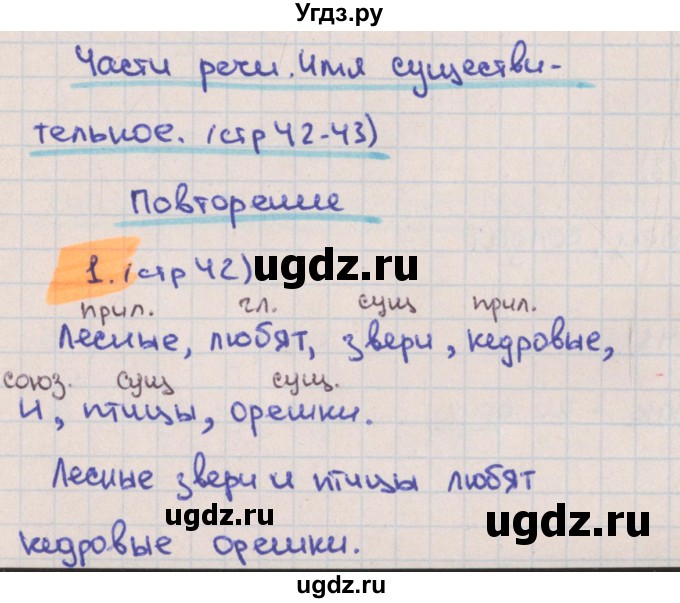 Угдз.ру
Части речи. Имя существи-
тельное. (стр 42-43)
Повторение
1. (стр 42)
ugdz.ru
прил. гл. сущ прил.
Лесные, любят, звери, кедровые,
союз. сущ сущ.
и, птицы, орешки.
Лесные звери и птицы любят
ugdz.ru ugdz.ru
кедровые орешки.
ugdz.ru